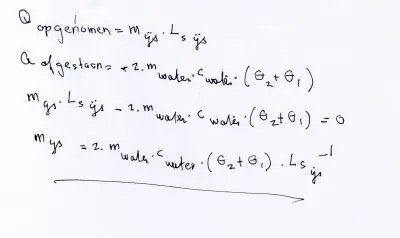 Q opgenomen = m ijs · Ls ijs
Q afgestaan = - 2. m water · c water · (θ2 + θ1)
m ijs · Ls ijs - 2. m water · c water · (θ2 + θ1) = 0
m ijs = 2. m water · c water · (θ2 + θ1) · Ls ijs⁻¹